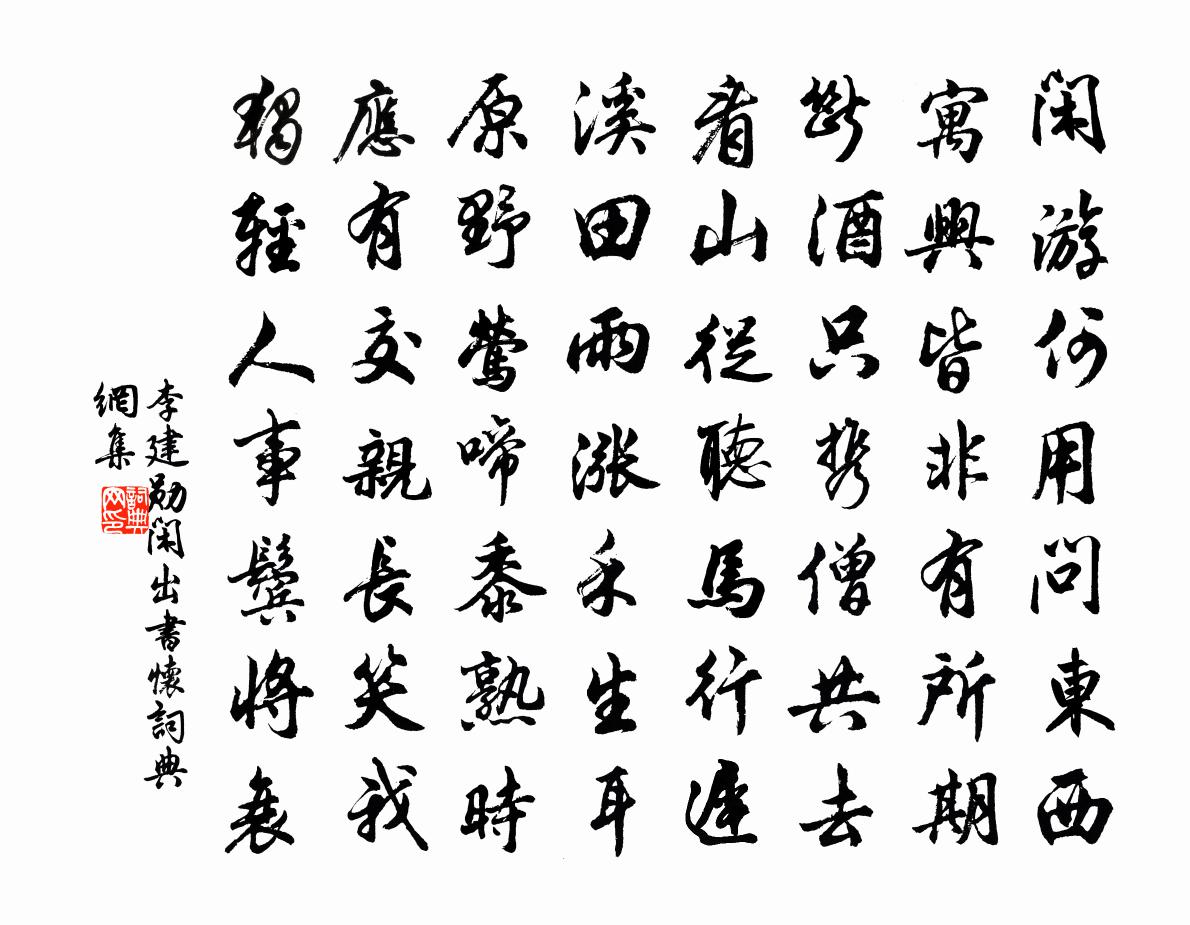 閑游何用問東西
寓興皆非有所期
斷酒只攜僧共去
看山從聽馬行遲
溪田雨漲禾生耳
原野鶯啼黍熟時
應有交親長笑我
獨輕人事鬢將衰
李建勛閑出書懷詞典
網集
詞典
网印